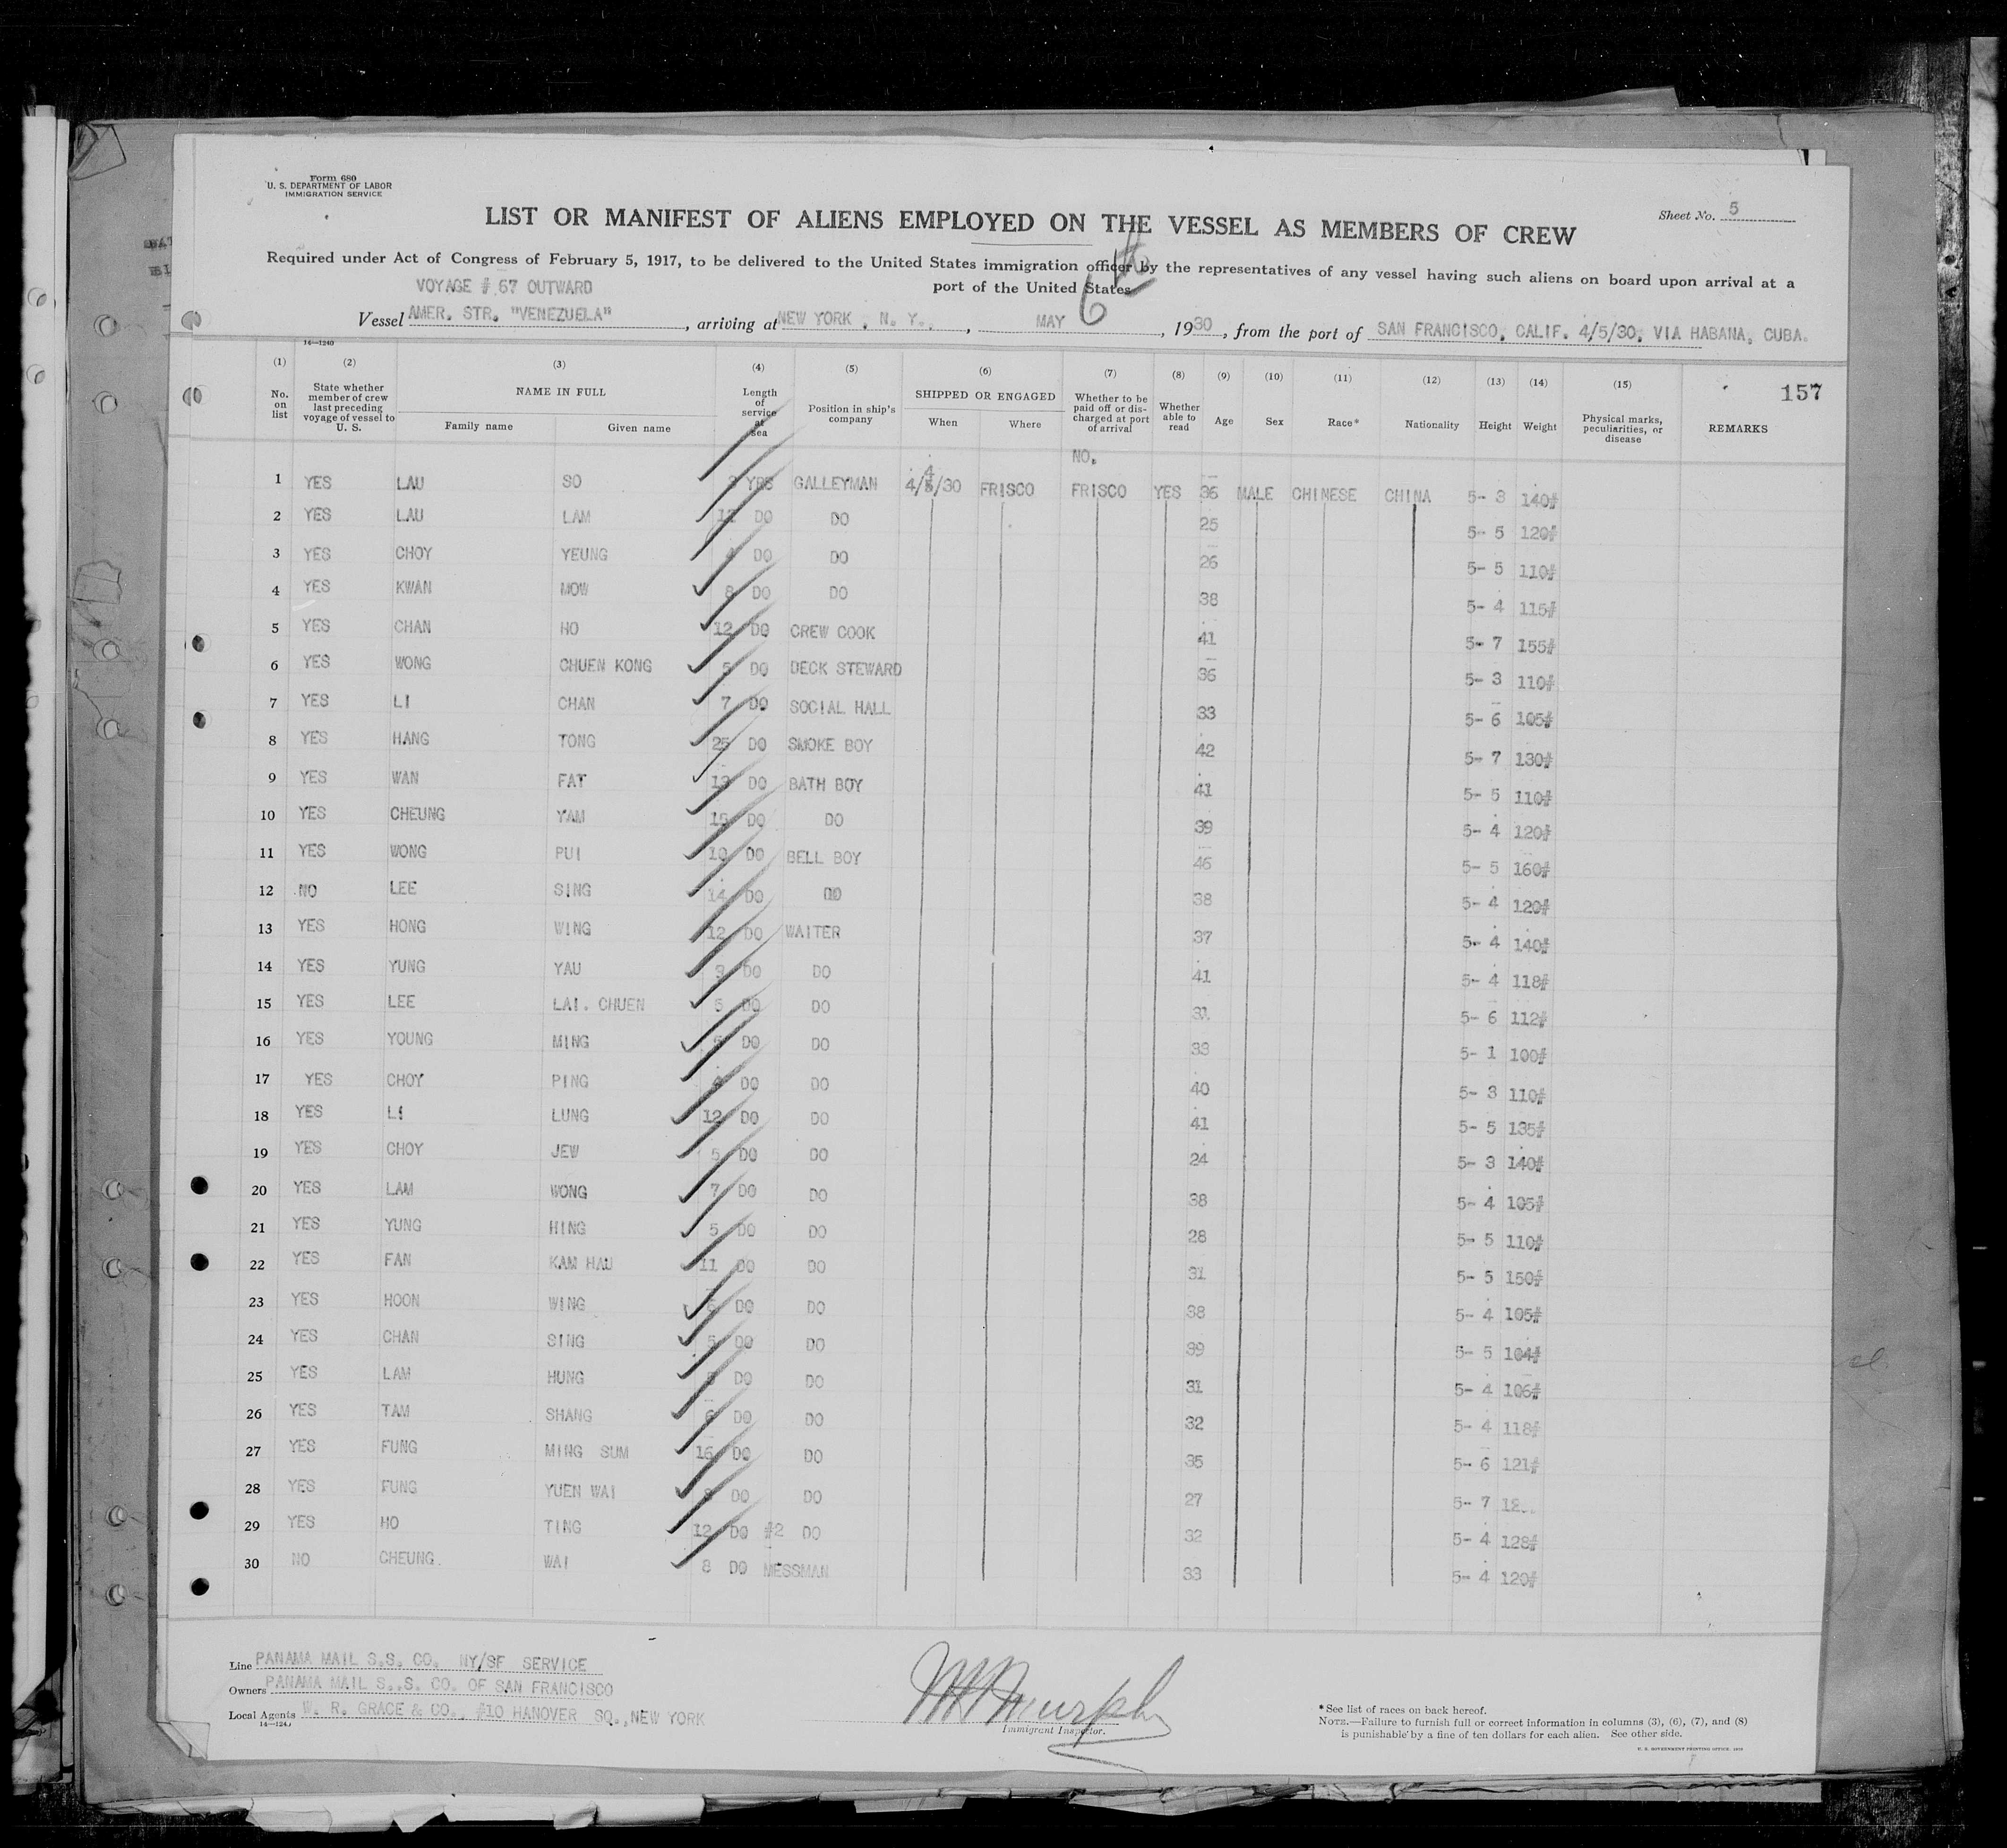 Form 680
U. S. DEPARTMENT OF LABOR
IMMIGRATION SERVICE
Sheet No. 5
LIST OR MANIFEST OF ALIENS EMPLOYED ON THE VESSEL AS MEMBERS OF CREW
Required under Act of Congress of February 5, 1917, to be delivered to the United States immigration officer by the representatives of any vessel having such aliens on board upon arrival at a
port of the United States
VOYAGE # 67 OUTWARD
6th
Vessel AMER. STR. "VENEZUELA", arriving at NEW YORK, N. Y., MAY, 1930, from the port of SAN FRANCISCO, CALIF. 4/5/30, VIA HABANA, CUBA.
14—1240
(1) (2) (3) (4) (5) (6) (7) (8) (9) (10) (11) (12) (13) (14) (15)
157
No. on list
State whether member of crew last preceding voyage of vessel to U. S.
NAME IN FULL
Family name Given name
Length of service at sea
Position in ship's company
SHIPPED OR ENGAGED
When Where
Whether to be paid off or discharged at port of arrival
Whether able to read
Age Sex Race* Nationality Height Weight
Physical marks, peculiarities, or disease
REMARKS
NO.
1 YES LAU SO YRS GALLEYMAN 4/4/30 FRISCO FRISCO YES 36 MALE CHINESE CHINA 5- 3 140#
2 YES LAU LAM DO DO 25 5- 5 120#
3 YES CHOY YEUNG 4 DO DO 26 5- 5 110#
4 YES KWAN MOW 8 DO DO 38 5- 4 115#
5 YES CHAN HO 12 DO CREW COOK 41 5- 7 155#
6 YES WONG CHUEN KONG 5 DO DECK STEWARD 36 5- 3 110#
7 YES LI CHAN 7 DO SOCIAL HALL 33 5- 6 105#
8 YES HANG TONG 25 DO SMOKE BOY 42 5- 7 130#
9 YES WAN FAT DO BATH BOY 41 5- 5 110#
10 YES CHEUNG YAM 15 DO DO 39 5- 4 120#
11 YES WONG PUI 10 DO BELL BOY 46 5- 5 160#
12 NO LEE SING 14 DO DO 38 5- 4 120#
13 YES HONG WING 12 DO WAITER 37 5- 4 140#
14 YES YUNG YAU DO DO 41 5- 4 118#
15 YES LEE LAI. CHUEN 5 DO DO 31 5- 6 112#
16 YES YOUNG MING DO DO 33 5- 1 100#
17 YES CHOY PING 4 DO DO 40 5- 3 110#
18 YES LI LUNG 12 DO DO 41 5- 5 135#
19 YES CHOY JEW 5 DO DO 24 5- 3 140#
20 YES LAM WONG 7 DO DO 38 5- 4 105#
21 YES YUNG HING 5 DO DO 28 5- 5 110#
22 YES FAN KAM HAU 11 DO DO 31 5- 5 150#
23 YES HOON WING 6 DO DO 38 5- 4 105#
24 YES CHAN SING 5 DO DO 39 5- 5 104#
25 YES LAM HUNG DO DO 31 5- 4 106#
26 YES TAM SHANG 6 DO DO 32 5- 4 118#
27 YES FUNG MING SUM 16 DO DO 35 5- 6 121#
28 YES FUNG YUEN WAI DO DO 27 5- 7
29 YES HO TING 12 DO #2 DO 32 5- 4 128#
30 NO CHEUNG. WAI 8 DO MESSMAN 33 5- 4 120#
Line PANAMA MAIL S.S. CO. NY/SF SERVICE
Owners PANAMA MAIL S.S. CO. OF SAN FRANCISCO
Local Agents W. R. GRACE & CO., #10 HANOVER SQ., NEW YORK
Murphy
Immigrant Inspector.
*See list of races on back hereof.
NOTE.—Failure to furnish full or correct information in columns (3), (6), (7), and (8)
is punishable by a fine of ten dollars for each alien. See other side.